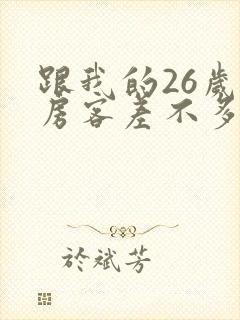 跟我的26歲
房客差不多
於斌芳